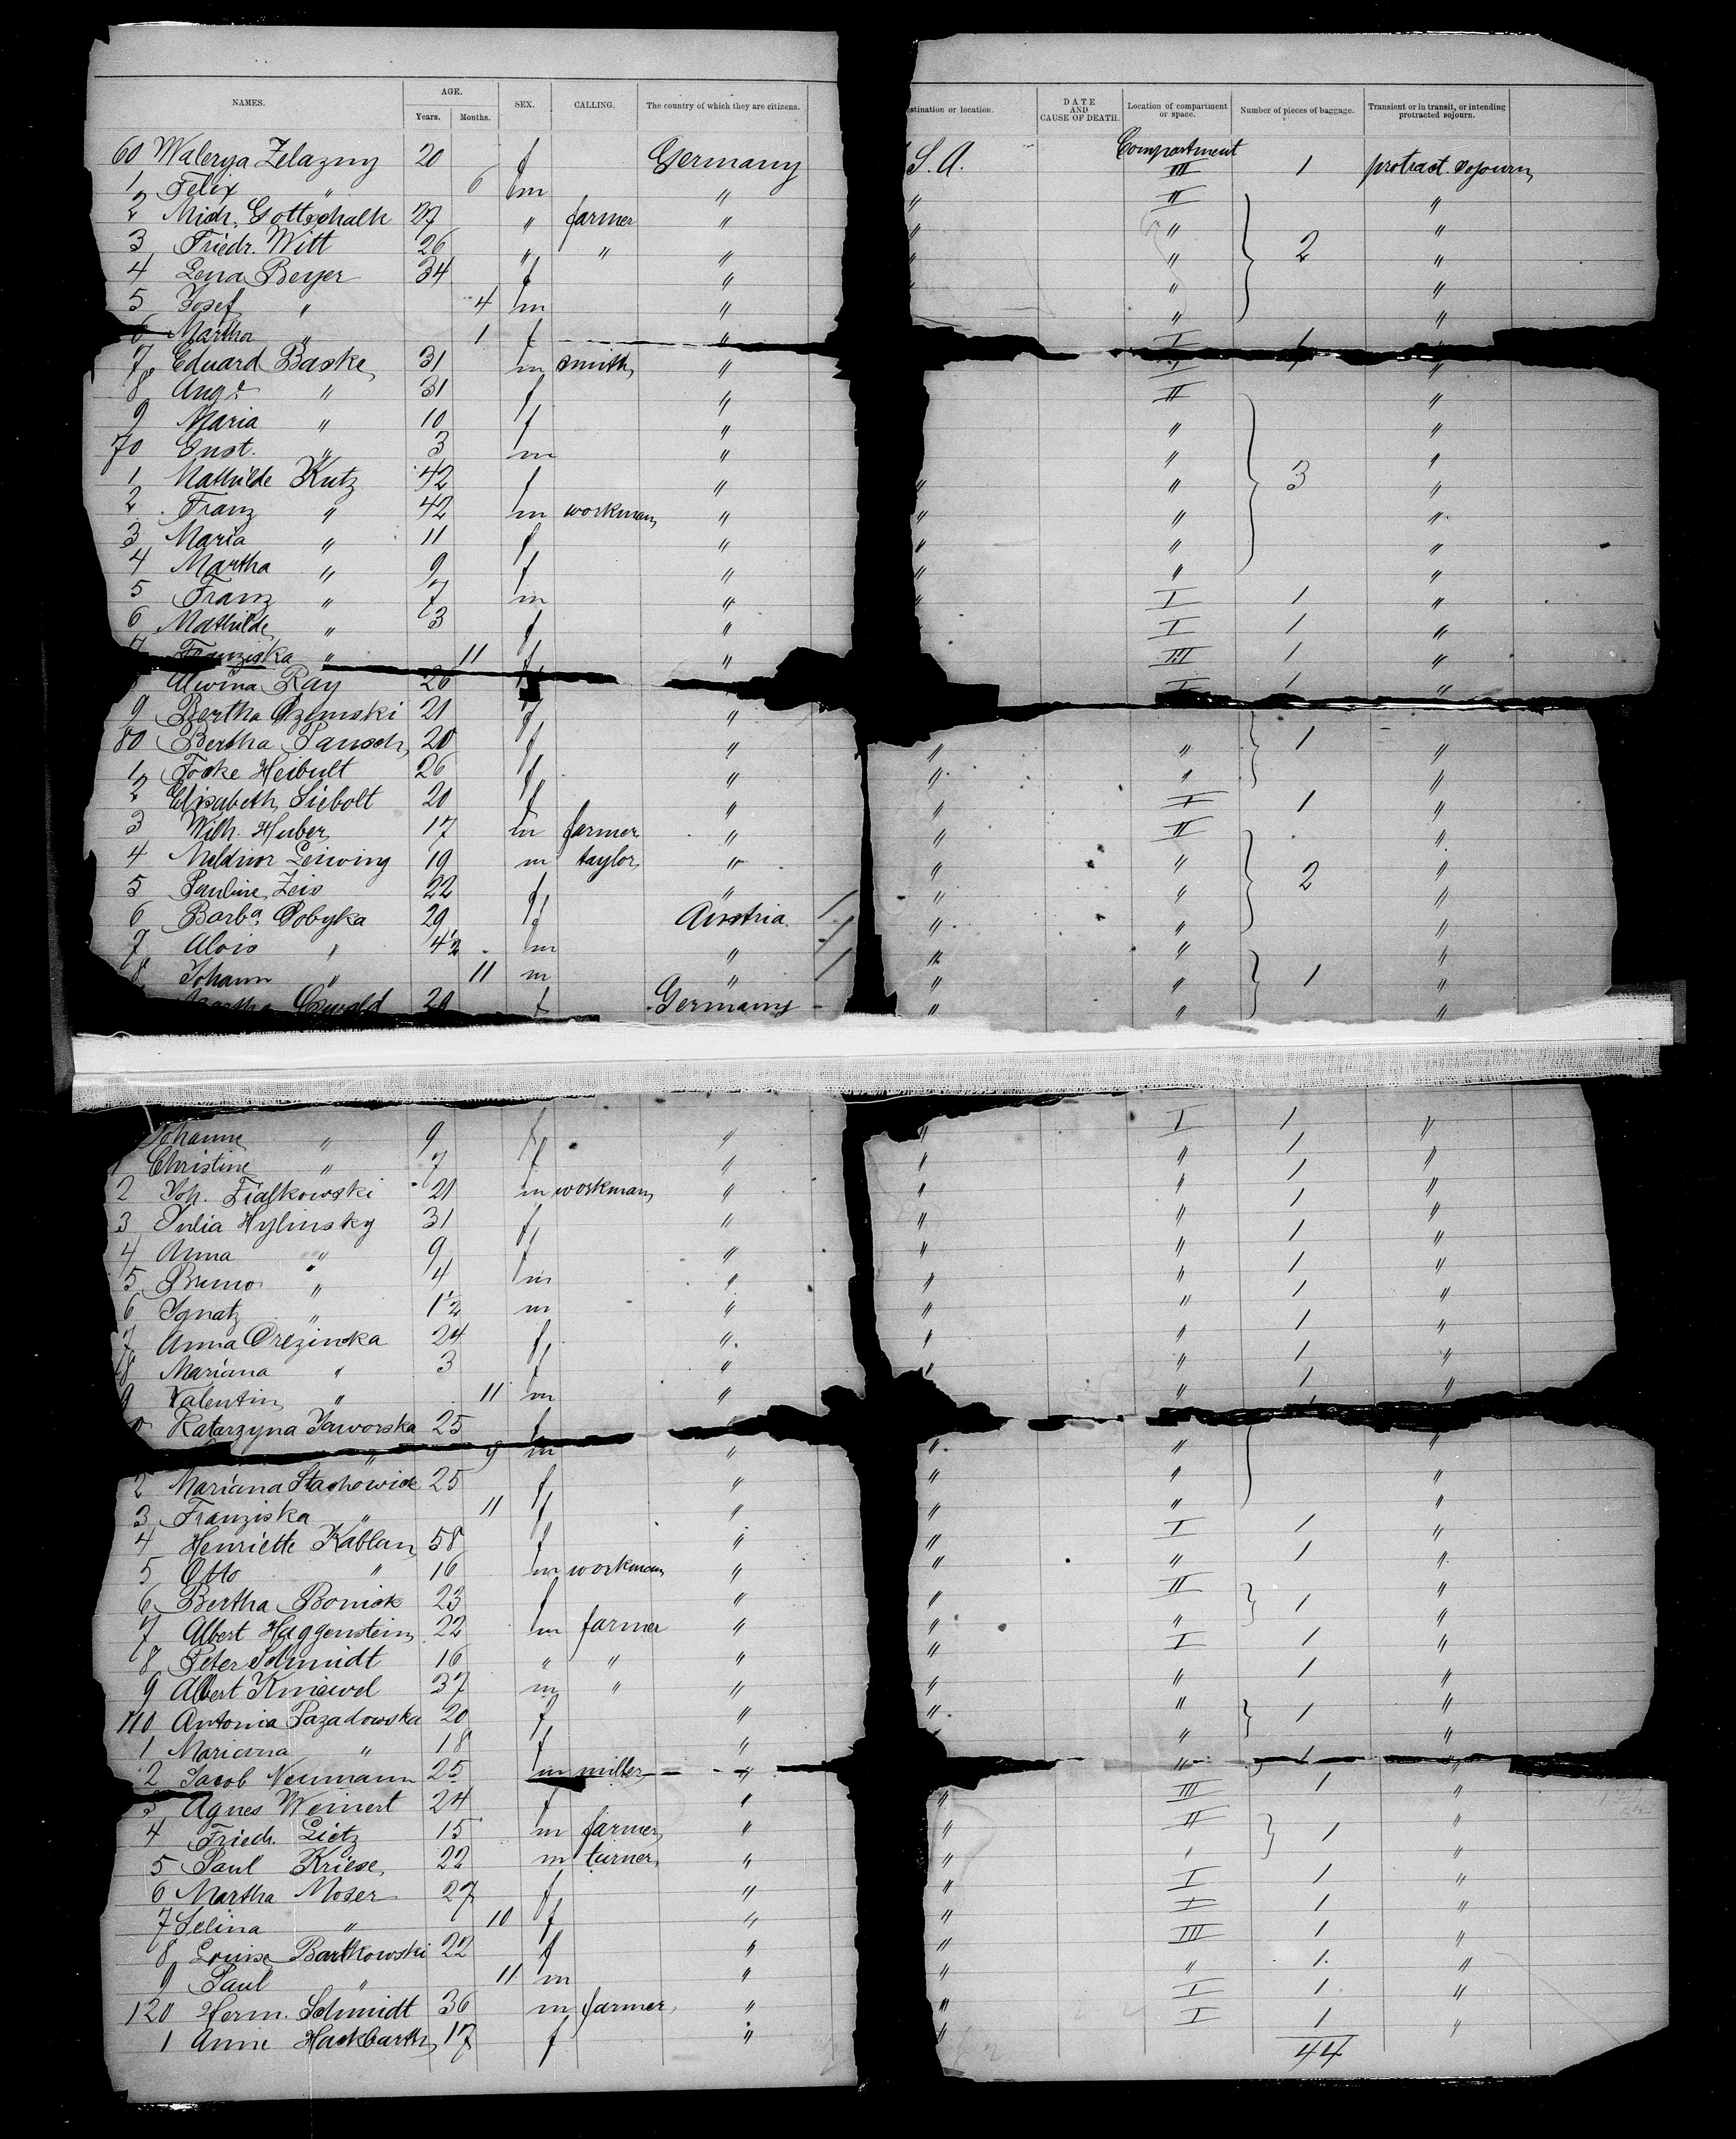 NAMES. AGE. Years. Months. SEX. CALLING. The country of which they are citizens. stination or location. DATE AND CAUSE OF DEATH. Location of compartment or space. Number of pieces of baggage. Transient or in transit, or intending protracted sojourn.
Compartment
60 Walerya Zelazny 20 f Germany S. A. III 1 protract. sojourn
1 Felix " 6 m " " II "
2 Mich. Gottschalk 27 " farmer " " " "
3 Friedr. Witt 26 " " " " " 2 "
4 Lena Beyer 34 f " " "
5 Josef " 4 m " " "
6 Martha " 1 f " I 1
7 Eduard Baske 31 m smith " I "
8 Aug.e " 31 f " II "
9 Maria " 10 f " " "
70 Gust. " 3 m " " "
1 Mathilde Kutz 42 f " " " 3 "
2 Franz " 42 m workman " " "
3 Maria " 11 f " " " "
4 Martha " 9 f " " " "
5 Franz " 7 m " " I 1 "
6 Mathilde " 3 f " I 1 "
7 Franziska " 11 f " III 1 "
Alwina Ray 26 f I 1 "
9 Bertha Ozemski 21 f "
80 Bertha Pansch 20 f " " " 1 "
1 Focke Heibult 26 f " " " "
2 Elisabeth Siebolt 20 f " " I 1 "
3 Wilh. Huber 17 m farmer " " II "
4 19 m taylor " " " "
5 Pauline Zeis 22 f " " " 2 "
6 Barba. 29 f Austria " " "
7 Alois " 4 1/2 m " " " "
8 Johann " 11 m " " " 1 "
Oswald 29 f Germany " " "
Johanne " 9 f " " I 1 "
1 Christine " 7 f " " " 1 "
2 Joh. Fialkowski 21 m workman " " " 1 "
3 Julia Hylinsky 31 f " " " 1 "
4 Anna " 9 f " " " 1 "
5 Bruno " 4 m " " " 1 "
6 Ignatz " 1 1/2 m " " " 1 "
7 Anna Orezinska 24 f " " " 1 "
8 Mariana " 3 f " " " 1 "
9 Valentin " 11 m " " 1 "
Katarzyna Jaworska 25 f
" 9 m " " " "
2 Mariana Stachowick 25 f " " " "
3 Franziska " 11 f " " " "
4 Henriette Kablan 58 f " " I 1 "
5 Otto " 16 m workman " " " 1 "
6 Bertha Bonick 23 f " " II "
7 Albert Haggenstein 22 m farmer " " " 1 "
8 Peter Schmidt 16 " " " " I 1 "
9 Albert Kniewel 37 m " " " " 1 "
110 Antonia Pazadowska 20 f " " " 1 "
1 Mariana " 18 f " " "
2 Jacob Neumann 25 m miller " "
3 Agnes Weinert 24 f " " III 1 "
4 Friedr. Lietz 15 m farmer " " II "
5 Paul Kriese 22 m turner " " " 1 "
6 Martha Moser 27 f " " I 1 "
7 Selina " 10 f " " I 1 "
8 Louise Bartkowski 22 f " " III 1 "
9 Paul " 11 m " " " 1 "
120 Herm. Schmidt 36 m farmer " " I 1 "
1 Anne Hackbarth 17 f " " I 1 "
44